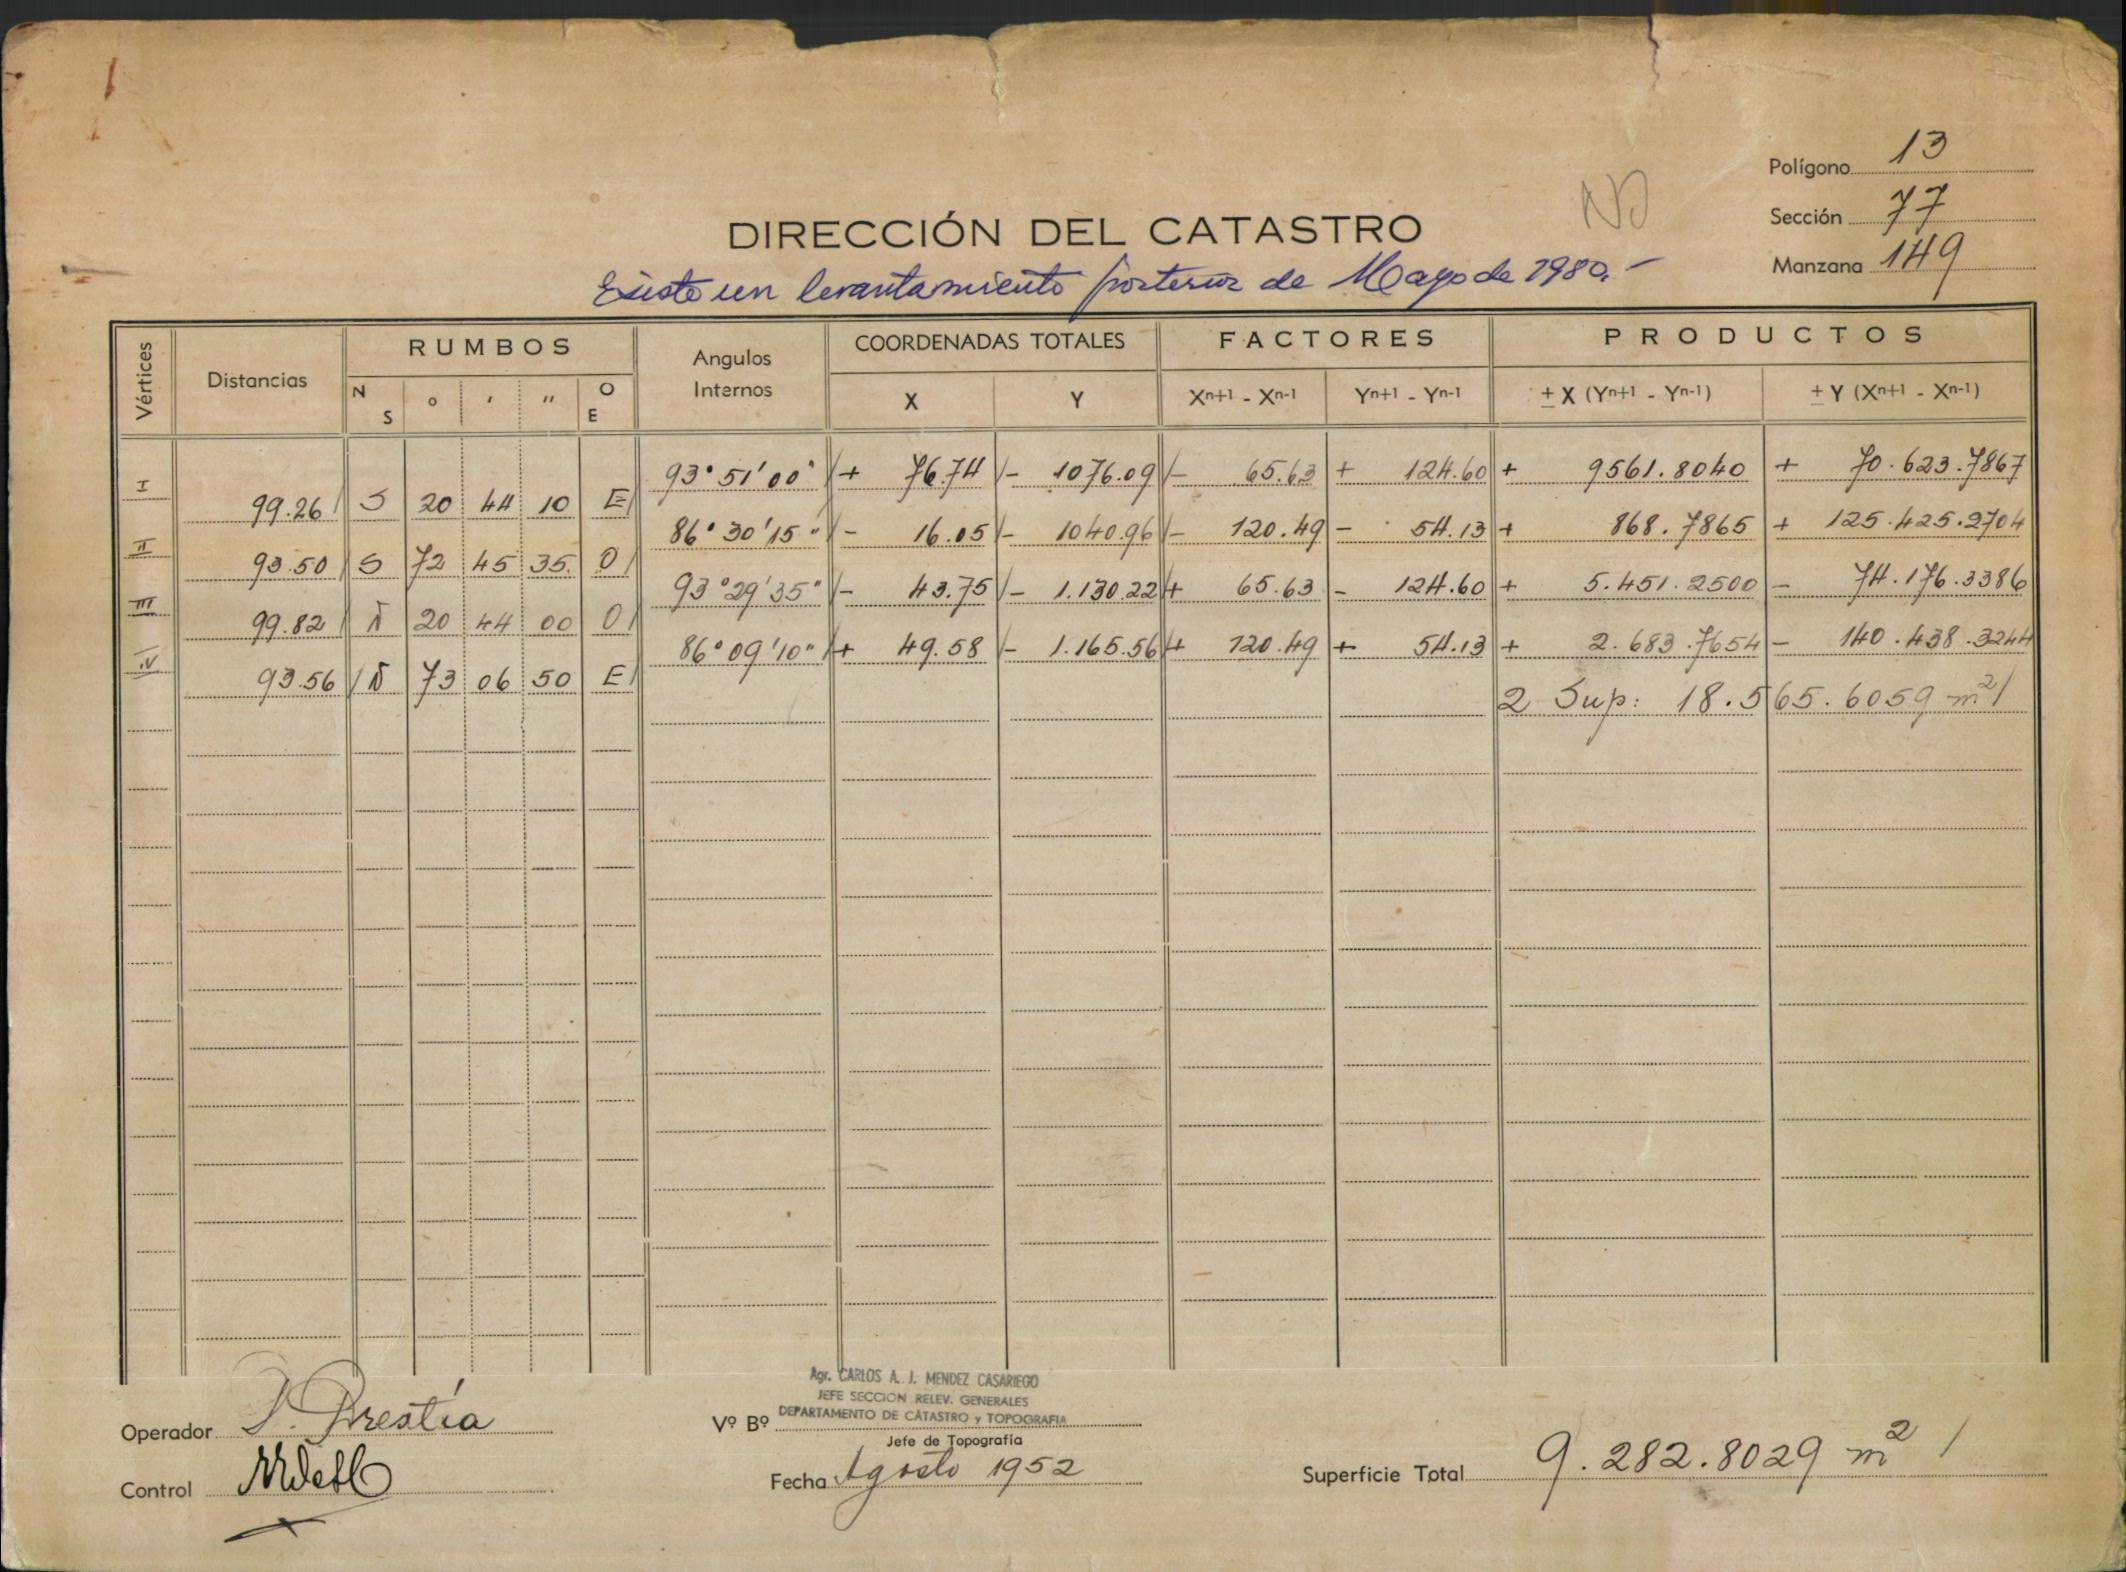 Polígono 13
Sección 77
Manzana 149
No
DIRECCIÓN DEL CATASTRO
Existe un levantamiento posterior de Mayo de 1980.-
Vértices Distancias RUMBOS Angulos Internos COORDENADAS TOTALES FACTORES PRODUCTOS
N S ° ' " O E X Y Xn+1 - Xn-1 Yn+1 - Yn-1 ± X (Yn+1 - Yn-1) ± Y (Xn+1 - Xn-1)
I 93° 51' 00" + 76.74 - 1076.09 - 65.63 + 124.60 + 9561.8040 + 70.623.7867
99.26 S 20 44 10 E
II 86° 30' 15" - 16.05 - 1040.96 - 120.49 - 54.13 + 868.7865 + 125.425.2704
93.50 S 72 45 35 O
III 93° 29' 35" - 43.75 - 1.130.22 + 65.63 - 124.60 + 5.451.2500 - 74.176.3386
99.82 N 20 44 00 O
IV 86° 09' 10" + 49.58 - 1.165.56 + 120.49 + 54.13 + 2.683.7654 - 140.438.3244
93.56 N 73 06 50 E
2 Sup: 18.565.6059 m²
Agr. CARLOS A. J. MENDEZ CASARIEGO
JEFE SECCION RELEV. GENERALES
DEPARTAMENTO DE CATASTRO y TOPOGRAFIA
Operador Prestía
Vº Bº
Jefe de Topografía
Control
Fecha Agosto 1952
Superficie Total 9.282.8029 m²